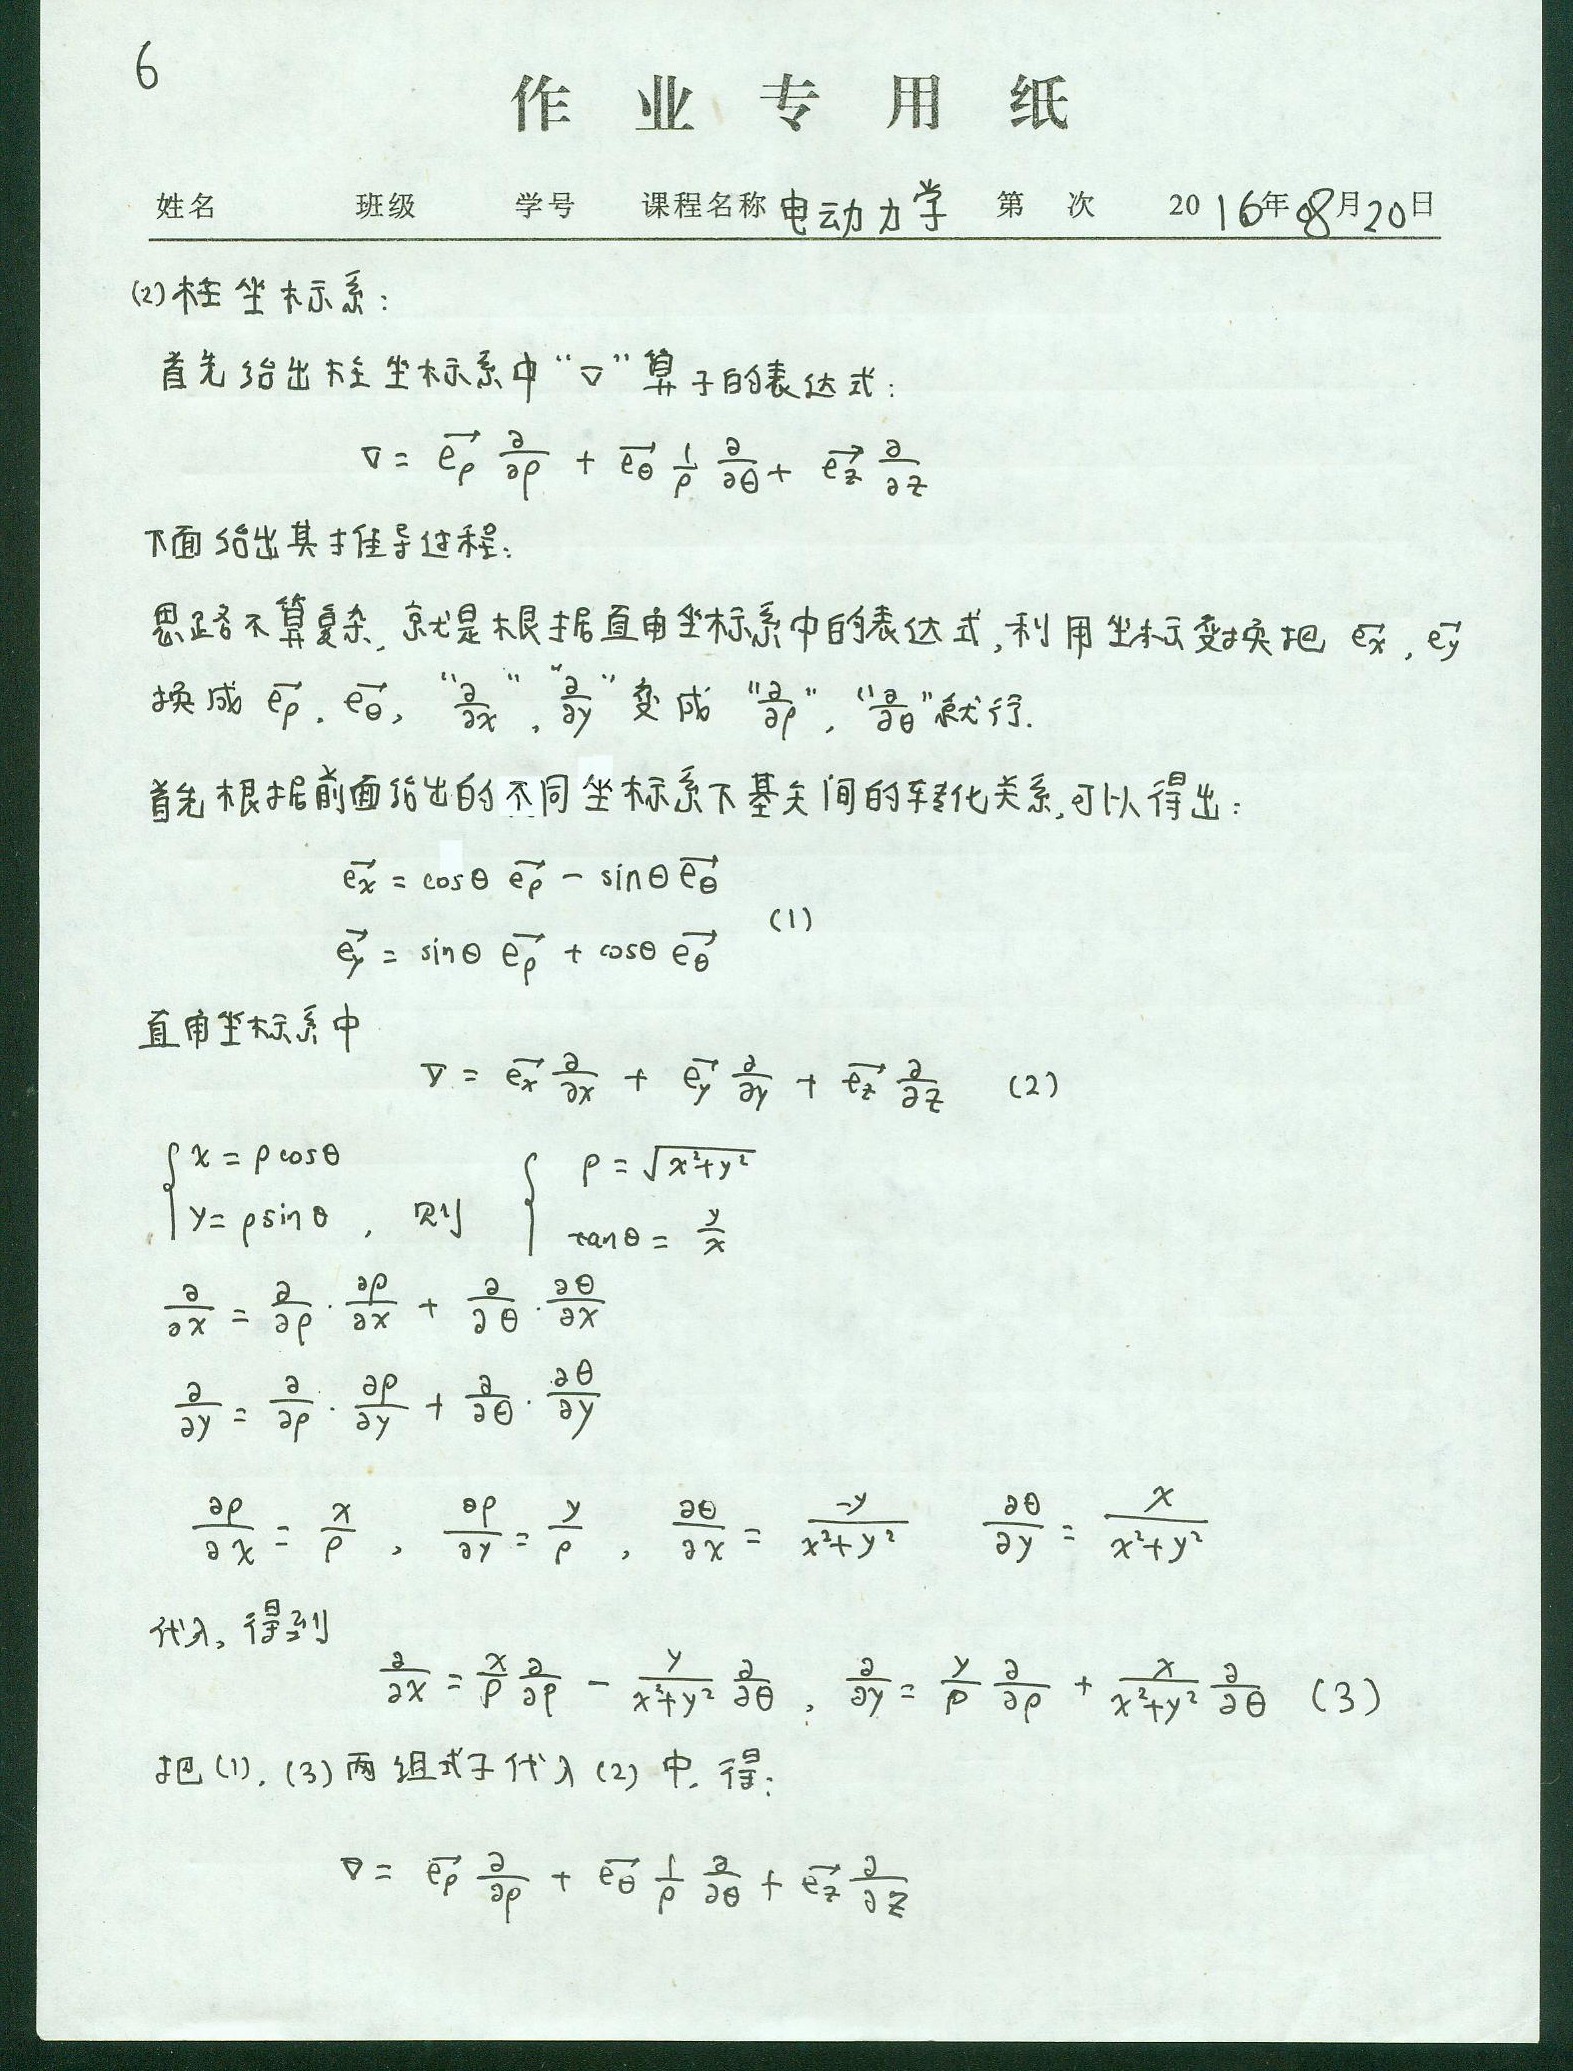 6
作业专用纸
姓名 班级 学号 课程名称 电动力学 第 次 2016年08月20日
(2)柱坐标系:
首先给出柱坐标系中“∇”算子的表达式:
∇ = e⃗ρ ∂/∂ρ + e⃗θ 1/ρ ∂/∂θ + e⃗z ∂/∂z
下面给出其推导过程:
思路不算复杂,就是根据直角坐标系中的表达式,利用坐标变换把 e⃗x, e⃗y
换成 e⃗ρ, e⃗θ, “∂/∂x”, “∂/∂y”变成“∂/∂ρ”, “∂/∂θ”就行.
首先根据前面给出的不同坐标系下基矢间的转化关系,可以得出:
e⃗x = cosθ e⃗ρ - sinθ e⃗θ
(1)
e⃗y = sinθ e⃗ρ + cosθ e⃗θ
直角坐标系中
∇ = e⃗x ∂/∂x + e⃗y ∂/∂y + e⃗z ∂/∂z (2)
{ x = ρcosθ { ρ = √(x²+y²)
y = ρsinθ , 则 tanθ = y/x
∂/∂x = ∂/∂ρ · ∂ρ/∂x + ∂/∂θ · ∂θ/∂x
∂/∂y = ∂/∂ρ · ∂ρ/∂y + ∂/∂θ · ∂θ/∂y
∂ρ/∂x = x/ρ , ∂ρ/∂y = y/ρ , ∂θ/∂x = -y/(x²+y²) ∂θ/∂y = x/(x²+y²)
代入,得到
∂/∂x = x/ρ ∂/∂ρ - y/(x²+y²) ∂/∂θ , ∂/∂y = y/ρ ∂/∂ρ + x/(x²+y²) ∂/∂θ (3)
把(1),(3)两组式子代入(2)中,得:
∇ = e⃗ρ ∂/∂ρ + e⃗θ 1/ρ ∂/∂θ + e⃗z ∂/∂z